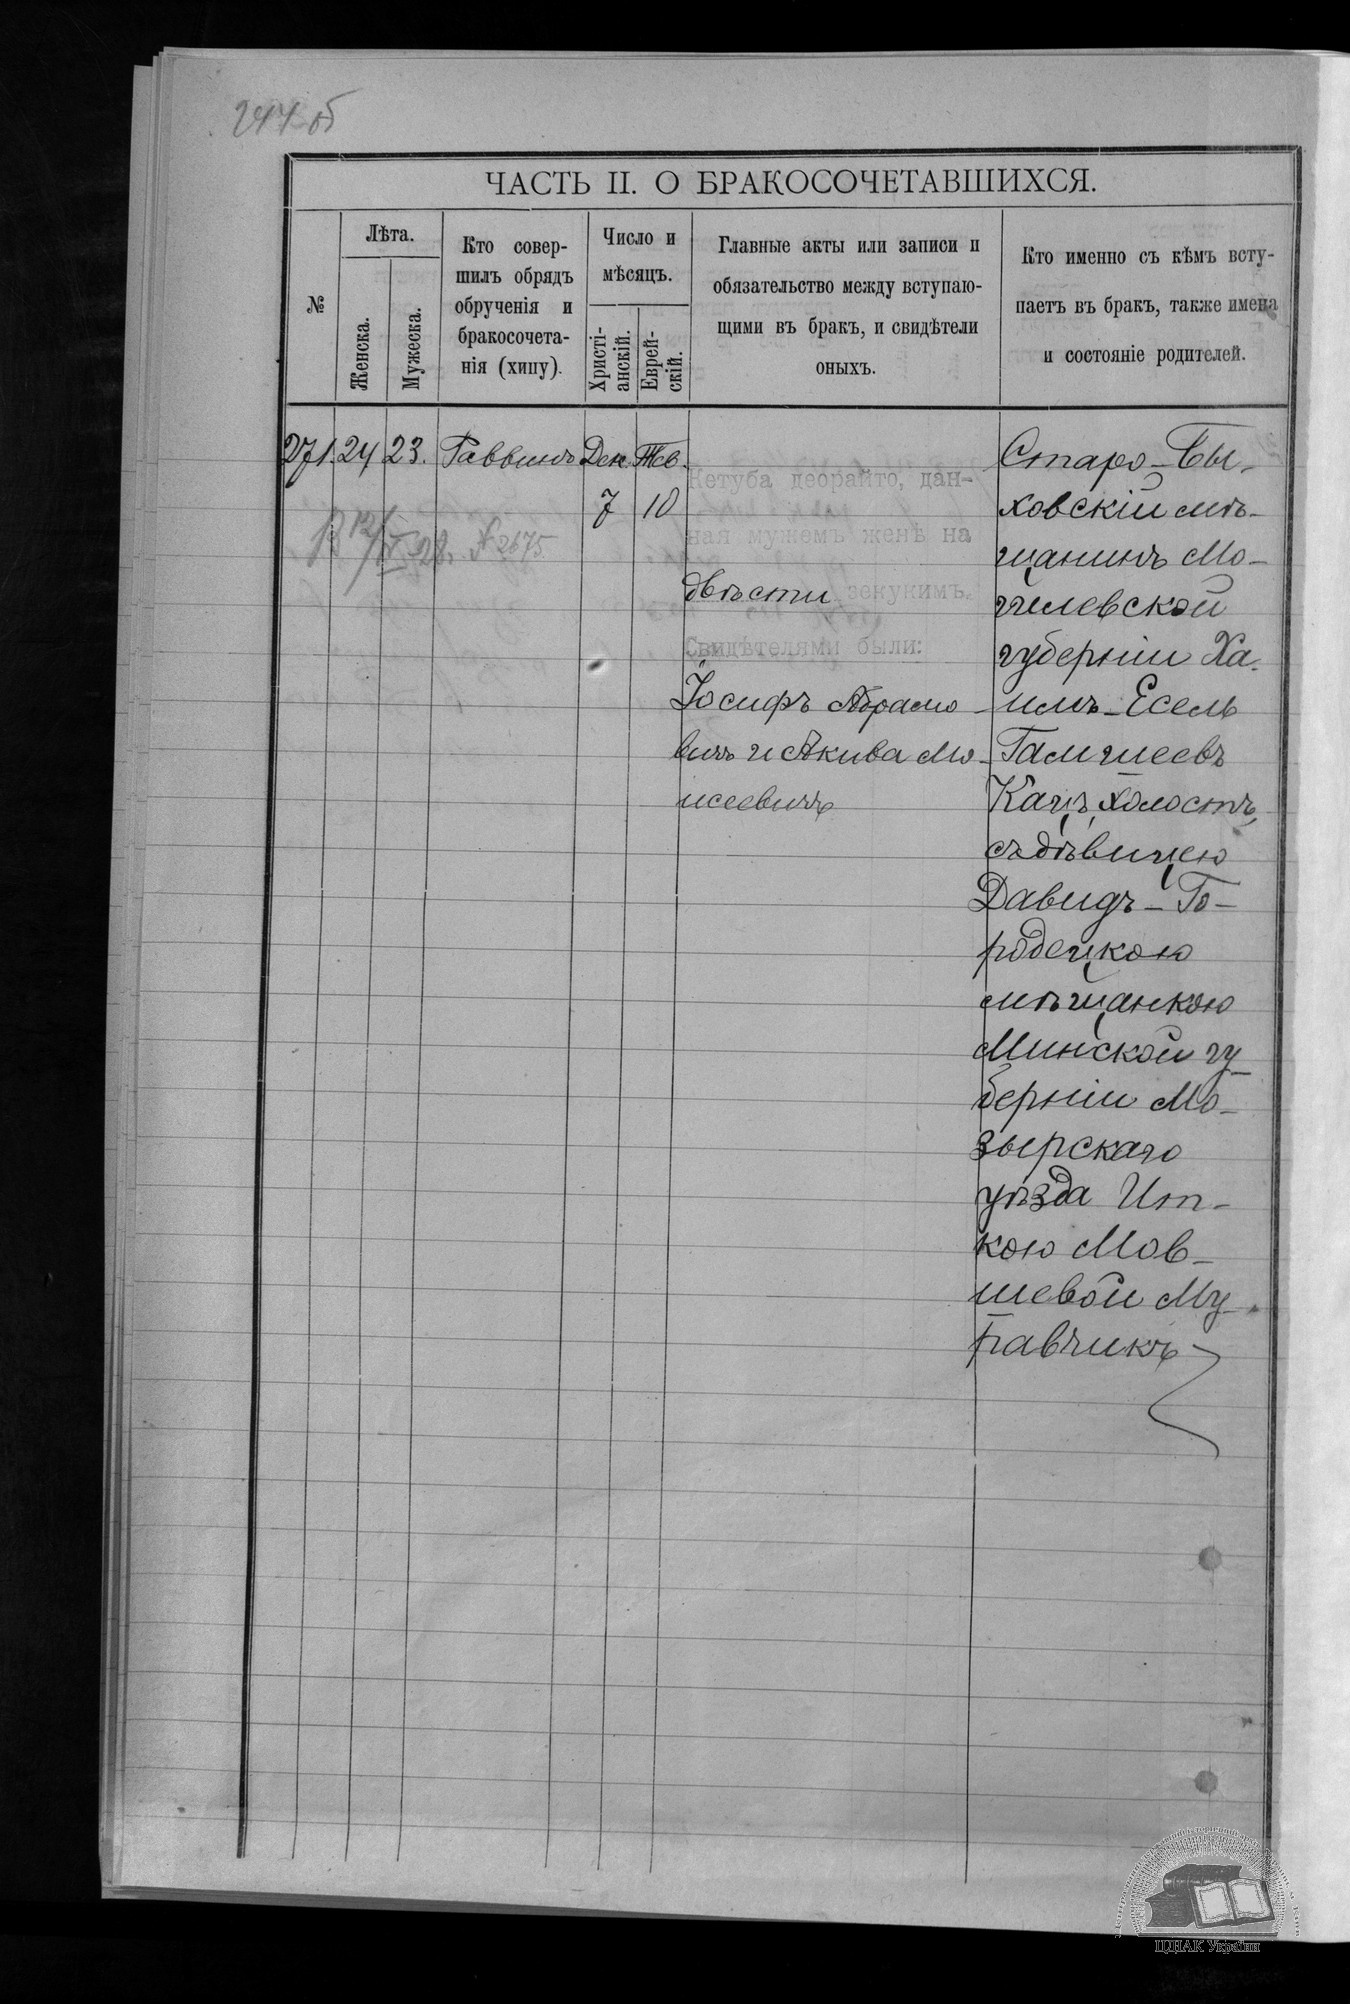 244 об
ЧАСТЬ II. О БРАКОСОЧЕТАВШИХСЯ.
№
Лѣта.
Женска.
Мужеска.
Кто совер-
шилъ обрядъ
обрученія и
бракосочета-
нія (хупу).
Число и
мѣсяцъ.
Христі-
анскій.
Еврей-
скій.
Главные акты или записи и
обязательство между вступаю-
щими въ брак, и свидѣтели
оныхъ.
Кто именно съ кѣмъ всту-
паетъ въ бракъ, также имена
и состояніе родителей.
271. 24 23. Раввинъ Дек. Тев.
7 10
№ 2675.
Кетуба деорайто, дан-
ная мужемъ женѣ на
двѣсти зекукимъ.
Свидѣтелями были:
Іосифъ Абрамо-
вичъ и Акива Мо-
исеевичъ
Старо-Бы-
ховскій мѣ-
щанинъ Мо-
гилевской
губерніи Ха-
имъ-Есель
Кацъ, холостъ,
съ дѣвицею
Давидъ-Го-
родецкою
мѣщанкою
Минской гу-
берніи Мо-
зырскаго
уѣзда Ит-
кою Мов-
шевой Му-
равчикъ
ЦДІАК України